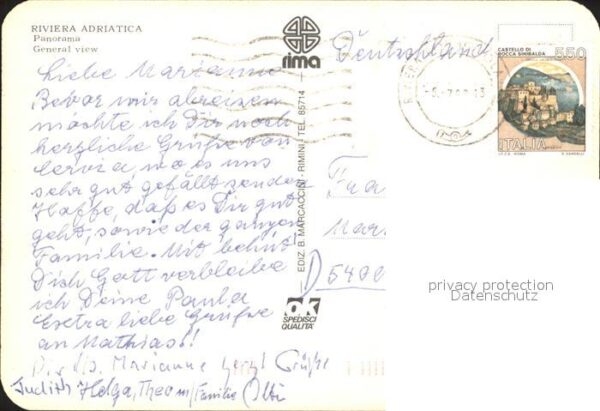 RIVIERA ADRIATICA
Panorama
General view
rima
Deutschland
CASTELLO DI
ROCCA SINIBALDA
550
ITALIA
Liebe Marianne
Bevor wir abreisen
möchte ich Dir noch
herzliche Grüße von
Cervia, wo es uns
sehr gut gefällt senden
Hoffe, daß es Dir gut
geht, sowie der ganzen
Familie. Mit behüt
Dich Gott verbleibe
ich Deine Paula
Extra liebe Grüße
an Mathias!
Marianne herzl Grüße
Judith Helga, Theo m/Familie
EDIZ. B. MARCACCINI - RIMINI - TEL. 85714
ok
SPEDISCI
QUALITÀ
Fra
Mar
D 5400
privacy protection
Datenschutz